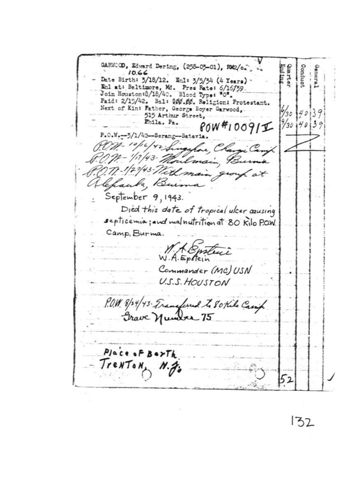 GARWOOD, Edward Dering, (258-03-01), RM2/c.
10.66
Date Birth: 3/18/12. Enl: 3/5/34 (4 Years)
Enl at: Baltimore, Md. Pres Rate: 6/16/39.
Join Houston: 8/18/40. Blood Type: "O".
Paid: 2/15/42. Bal: Religion: Protestant.
Next of Kin: Father, George Boyer Garwood,
515 Arthur Street,
Phila. Pa.
POW#10091 I
P.O.W.-3/1/43-Serang-Batavia.
P.O.W. Singapore, Changi Camp
P.O.W. Moulmain, Burma
P.O.W. group at
Burma
September 9, 1943.
Died this date of tropical ulcer causing
septicemia; and malnutrition at 80 Kilo P.O.W.
Camp. Burma.
W. A. Epstein
W. A. Epstein
Commander (MC) USN
U.S.S. HOUSTON
P.O.W. Transferred to 80 Kilo Camp
Grave Number 75
Place of Barth
TRENTON, N.J.
Quarter Ending
Conduct
General
6/30 40 39
9/30 40 39
52
132